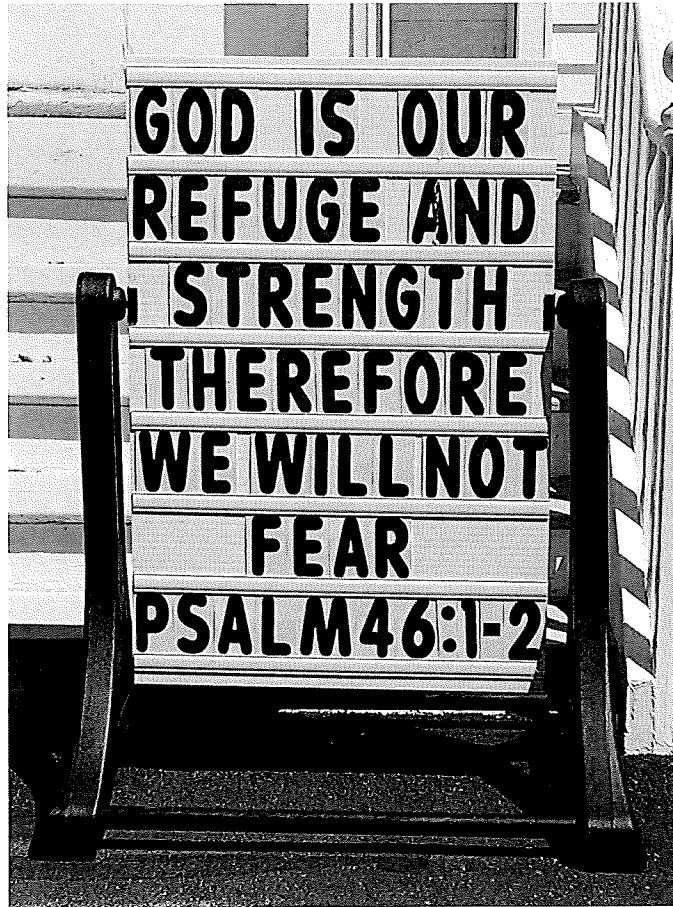 GOD IS OUR
REFUGE AND
STRENGTH
THEREFORE
WE WILL NOT
FEAR
PSALM 46:1-2